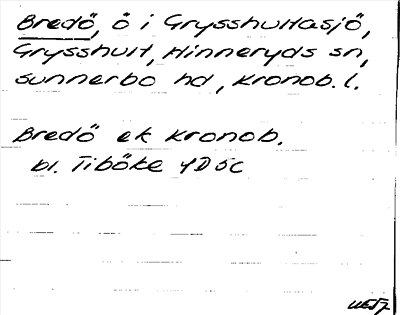 Bredö, ö i Grysshultasjö,
Grysshult, Hinneryds sn,
Sunnerbo hd, Kronob. l.
Bredö ek Kronob.
bl. Tiböke 4D5c